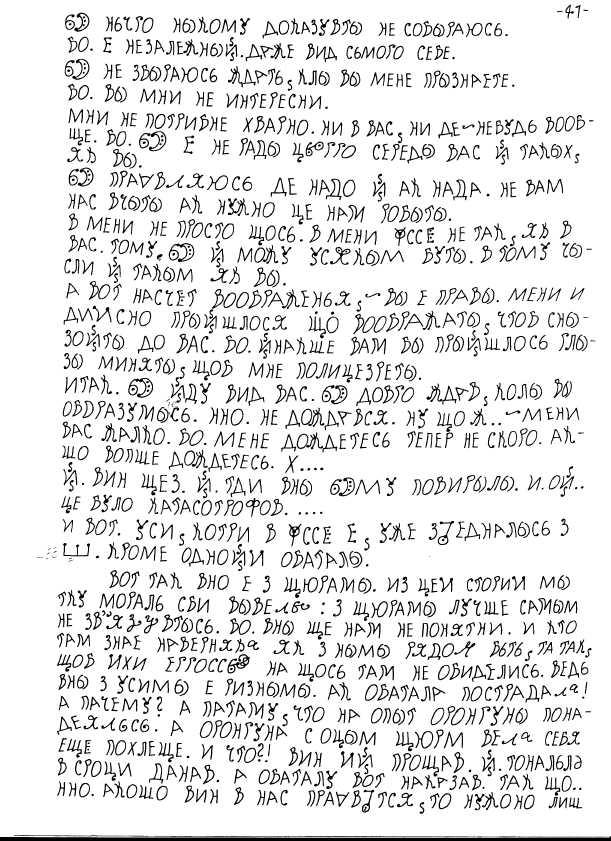 -41-
НЫЧТО НЫКОМУ ДОКАЗУВТЫ НЕ СОБЫРАЮСЬ.
ВО. Е НЕЗАЛЕЖНЫЙ. ДАЖЕ ВИД СЬМОГО СЕБЕ.
НЕ ЗБЫРАЮСЬ ЖДАТЬ, КЛЫ ВЫ МЕНЕ ПРЫЗНАЕТЕ.
ВО. ВЫ МНИ НЕ ИНТЕРЕСНИ.
МНИ НЕ ПОТРИБНЕ ХВАРНО. НИ В ВАС, НИ ДЕ-НЕБУДЬ ВООБ-
ЩЕ. ВО. Е НЕ РАДЫ СЕРЕДЫ ВАС Й ТАКЫХ,
ЯК ВЫ.
ПРАВЛЯЮСЬ ДЕ НАДО Й АК НАДА. НЕ ВАМ
НАС ВЧЫТЫ АК НУЖНО ЦЕ НАМ РОБЫТЫ.
В МЕНИ НЕ ПРОСТО ЩОСЬ. В МЕНИ ФССЕ НЕ ТАК, ЯК В
ВАС. ТОМУ. Й МОЖУ УСЯКЫМ БУТЫ. В ТОМУ ЧЫ-
СЛИ Й ТАКЫМ ЯК ВЫ.
А ВОТ НАСЧЕТ ВООБРАЖЕНЬЯ,- ВЫ Е ПРАВЫ. МЕНИ И
ДИЙСНО ПРЫЙШЛОСЯ ЩО ВООБРАЖАТЫ, ЧТОБ СНЫ-
ЗОЙТЫ ДО ВАС. ВО. ЙНАКШЕ ВАМ БЫ ПРЫЙШЛОСЬ ГЛЫ-
ЗЫ МИНЯТЫ, ЩОБ МНЕ ПОЛИЦЕЗРЕТЫ.
ИТАК. ЙДУ ВИД ВАС. ДОВГО ЖДАВ, КОЛЫ ВЫ
ОБРАЗУМЫСЬ. ННО. НЕ ДОЖДАВСЯ. НУ ЩО Ж..- МЕНИ
ВАС ЖАЛКО. ВО. МЕНЕ ДОЖДЕТЕСЬ ТЕПЕР НЕ СКОРО. АК-
ЩО ВОПЩЕ ДОЖДЕТЕСЬ. Х....
Й. ВИН ЩЕЗ. Й. ТДИ ВНЫ ПОВИРЫЛЫ. И.ОЙ..
ЦЕ БУЛО КАТАСОТРОФОВ. ....
И ВОТ. УСИ, КОТРИ В ФССЕ Е, УЖЕ ЗЪЕДНАЛЫСЬ З
Ш. КРОМЕ ОДНОЙИ ОВАТАЛЫ.
ВОТ ТАК ВНО Е З ЩЮРАМЫ. ИЗ ЦЕИ СТОРИИ МЫ
ТКУ МОРАЛЬ СБИ ВЫВЕЛЫ : З ЩЮРАМЫ ЛУЧШЕ САМЫМ
НЕ ЗВ'ЯЗУВТЫСЬ. ВО. ВНЫ ЩЕ НАМ НЕ ПОНЯТНИ. И КТО
ТАМ ЗНАЕ НАВЕРНЯКА ЯК З НЫМЫ РЯДОМ БЫТЬ, ТА ТАК,
ЩОБ ИХИ НА ЩОСЬ ТАМ НЕ ОБИДЕЛИСЬ. ВЕДЬ
ВНЫ З УСИМЫ Е РИЗНЫМЫ. АК ОВАТАЛА ПОСТРАДАЛА!
А ПАЧЕМУ? А ПАТАМУ, ЧТО НА ОПЫТ ОРОНГУНЫ ПОНА-
ДЕЯЛЬСЬ. А ОРОНГУНА С ОЦЫМ ЩЮРМ ВЕЛА СЕБЯ
ЕЩЕ ПОХЛЕЩЕ. И ЧТО?! ВИН ИЙ ПРОЩАВ. Й. ТОНАЛЬЛЬ
В СРОЦИ ДАНАВ. А ОВАТАЛУ ВОТ НАКАЗАВ. ТАК ЩО..
ННО. АКЩО ВИН В НАС ПРАВЪТСЯ, ТО НУЖОНО ЛИШ